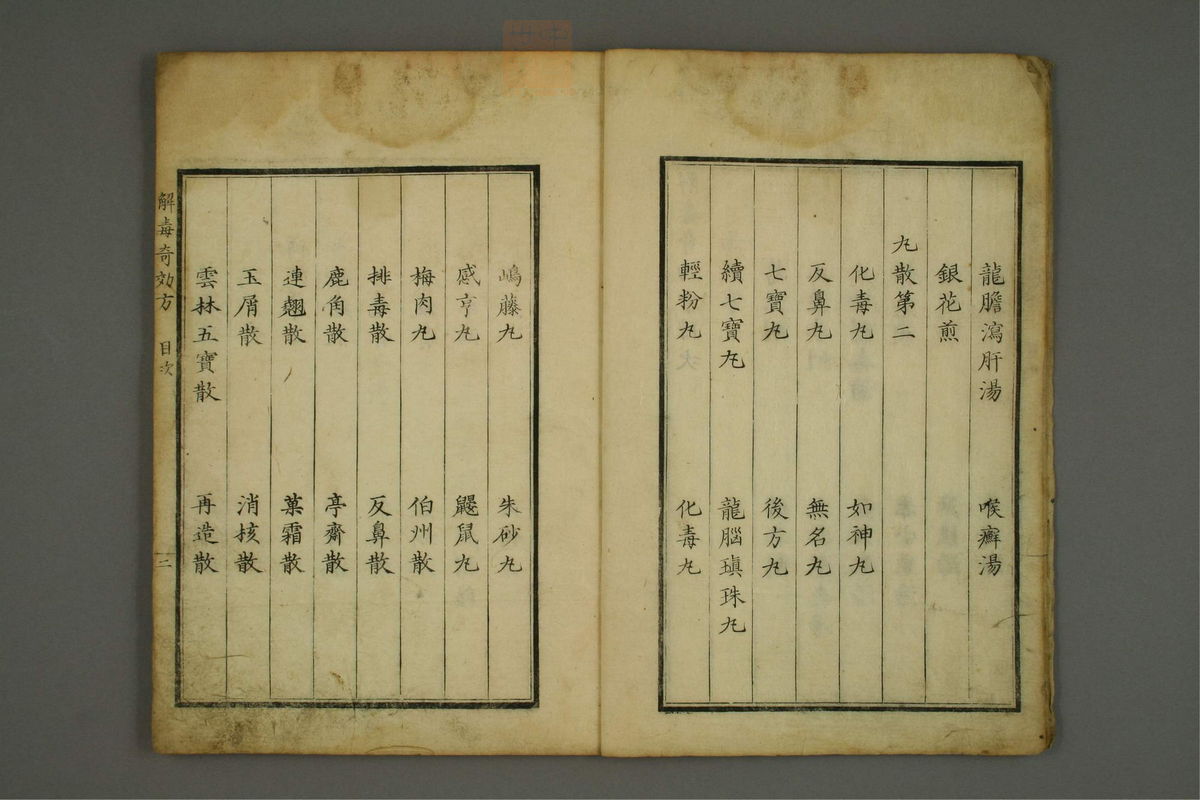 龍膽瀉肝湯　喉癬湯
銀花煎
丸散第二
化毒丸　如神丸
反鼻丸　無名丸
七寶丸　後方丸
續七寶丸　龍腦瑱珠丸
輕粉丸　化毒丸
嶋藤丸　朱砂丸
感亨丸　鼹鼠丸
梅肉丸　伯州散
排毒散　反鼻散
鹿角散　亭齋散
連翹散　菓霜散
玉屑散　消核散
雲林五寶散　再造散
解毒奇効方　目次　三